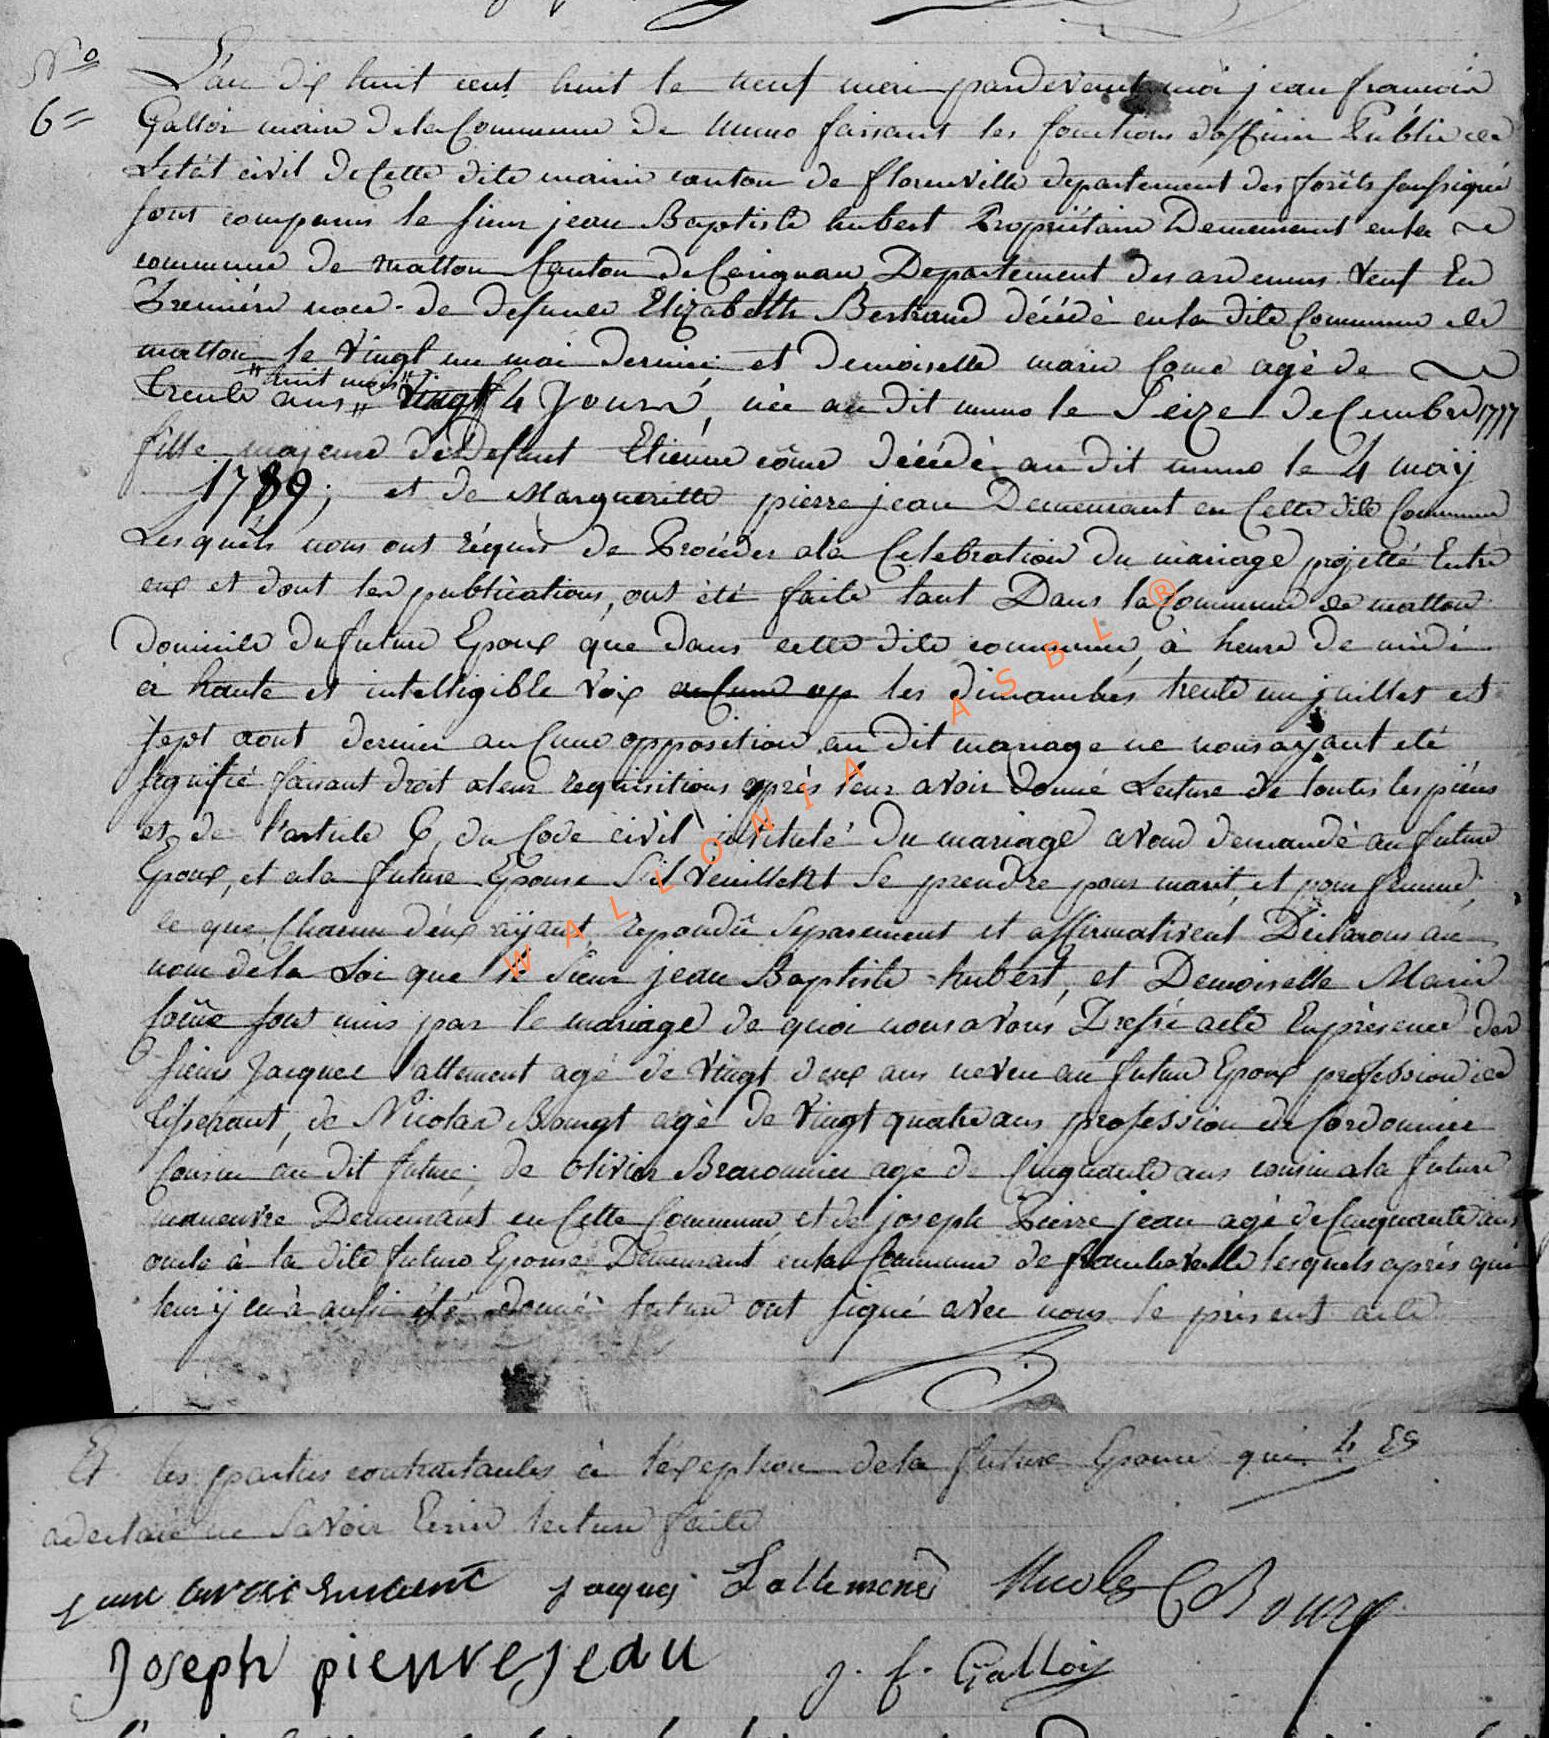 N°
6=
L'an dix huit cent huit le neuf mai pardevant moi jean francois
Gallois maire dela Commune de muno faisant les fonctions d'officier Public de
L'etat civil de Cette dite mairie canton de florenville departement des forêts soussigné
sont comparus le sieur jean Baptiste hubert Propriétaire Demeurant en la
commune de matton Canton de Carignan Departement des ardennes veuf En
Premiere noce de defunte Elizabeth Bertrand décédé en la dite Commune de
matton le vingt un mai dernier et demoiselle marie Come agé de
"huit mois"
trente ans 4 Jours, née au dit muno le Seize decembre 1777
fille majeure de defunt Etienne côme décédé au dit muno le 4 maÿ
1789; et de Margueritte pierre jean Demeurant en Cette dite Commune
Lesquels nous ont réquis de Proceder a la Celebration du mariage projetté Entre
eux et dont les publications, ont été faite tant Dans la Commune de matton
domicile du futur Epoux que dans cette dite commune, à heure de midi
à haute et intelligible voix aucune op les dimanches trente un juillet et
sept aout dernier aucune opposition au dit mariage ne nous ayant eté
signifié faisant droit a leur requisitions après leur avoir donné Lecture de toutes les pièces
et de l'article 6, du Code civil intitulé du mariage avons demandé au futur
Epoux, et a la future Epouse S'il veuillent Se prendre pour marit, et pour femme,
ce que Chacun d'eux aÿant repondû Separement et affirmativent Declarons au
nom de la Loi que le Sieur jean Baptiste hubert, et Demoiselle Marie
Côme sont unis par le mariage de quoi nous avons Dressé acte En présence des
sieurs Jacques lallement agé de vingt deux ans neveu au futur Epoux profession de
tisserant, de Nicolas Bourgt agé de vingt quatre ans profession de Cordonnier
Cousin au dit futur; de olivier Braconnier agé de Cinquante ans cousin a la future
maneuvre Demeurant en Cette Commune, et de joseph Pierre jean agé de Cinquante ans
oncle à la dite future Epouse Demeurant en la Commune de lesquels après qui
leur ÿ en à aussi été donné lecture ont signé avec nous le présent acte
Et les parties contractantes à l'exeption de la future Epouse qui
a declaré ne Savoir Ecrire lecture faite
jacques Lallement Nicolas Bourg
Joseph pierrejean j. f. Gallois
WALLONIA ASBL ®